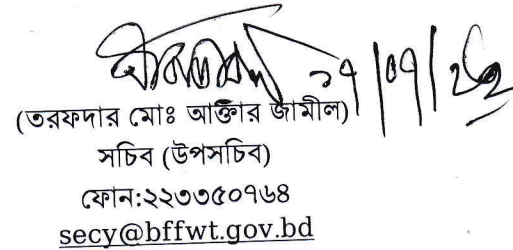 (তরফদার মোঃ আক্তার জামীল)
সচিব (উপসচিব)
ফোন:২২৩৩৫০৭৬৪
secy@bffwt.gov.bd